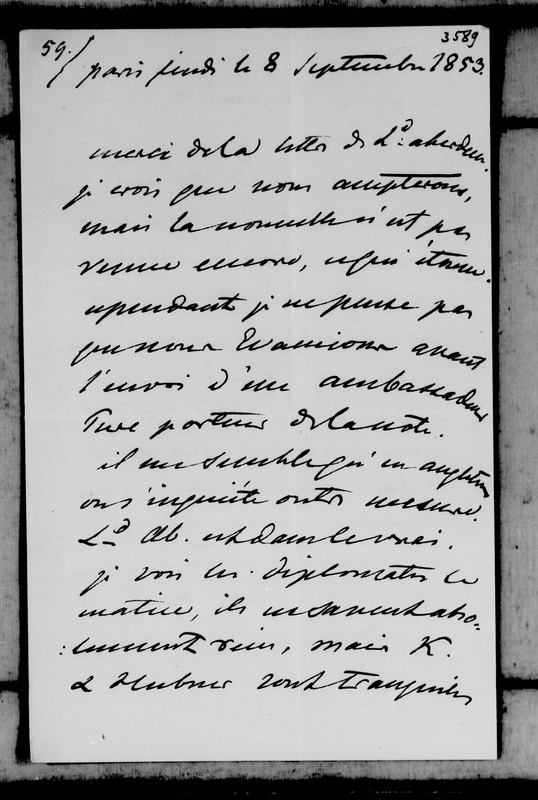 59. 3589
paris jeudi le 8 Septembre 1853.
merci de la lettre de Ld aberdeen.
je crois que nous accepterons,
mais la nouvelle n'est pas
venue encore, ce qui étonne.
cependant je ne pense pas
que nous Evacuions avant
l'envoi d'un ambassadeur
Turc porteur de la note.
il me semble qu'en angleterre
on s'inquiète outre mesure.
Ld Ab. est dans le vrai.
je vois les diplomates le
matin, ils ne savent abso=
:lument rien, mais K.
& Hubner sont tranquilles